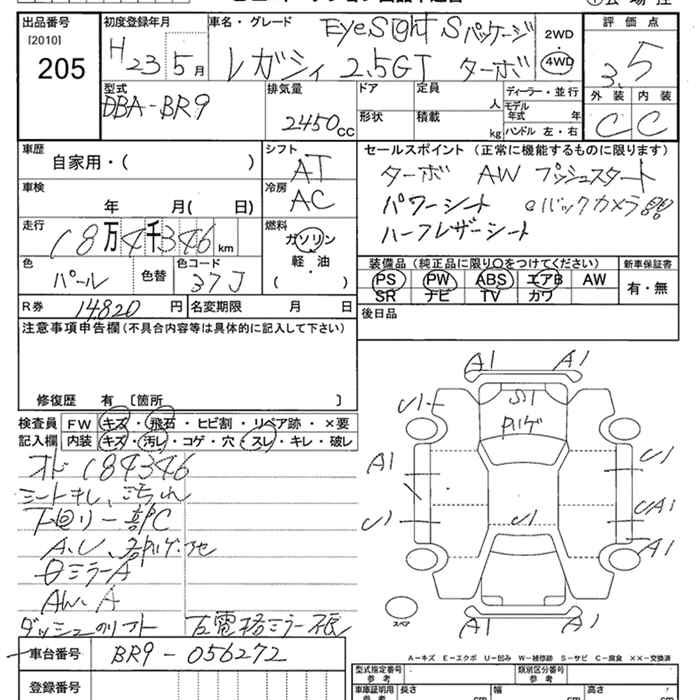 出品番号
[2010]
205
初度登録年月
H 23 5月
車名・グレード
EyeSight Sパッケージ
レガシィ 2.5GT ターボ
2WD
4WD
評価点
3.5
外装 内装
C C
型式
DBA-BR9
排気量
2450cc
ドア 定員
人
形状 積載
kg
ディーラー・並行
モデル年式 年
ハンドル 左・右
車歴
自家用・( )
シフト
AT
車検
年 月( 日)
冷房
AC
走行
18万4千346km
燃料
ガソリン
軽・油
( )
色
パール
色替
色コード
37J
R券 14,820円
名変期限 月 日
セールスポイント (正常に機能するものに限ります)
ターボ AW プッシュスタート
パワーシート ◎バックカメラ
ハーフレザーシート
装備品 (純正品に限り○をつけてください)
PS PW ABS エアB AW
SR ナビ TV カワ
新車保証書
有・無
後日品
注意事項申告欄(不具合内容等は具体的に記入して下さい)
修復歴 有 〔箇所 〕
検査員
記入欄
FW キズ・飛石・ヒビ割・リペア跡・×要
内装 キズ・汚レ・コゲ・穴・スレ・キレ・破レ
オド 184346
シートキレ、汚れ
下回り一部C
A、U、
Aミラー
AW、A
ダッシュ
A1 A1
S1
U1
A1
U1
U1
UA1
U1
A1
A1 A1
スペア
A－キズ E－エクボ U－凹み W－補修跡 S－サビ C－腐食 ××－交換済
車台番号
BR9-056272
登録番号
型式指定番号
参考
類別区分番号
参考
車庫証明用
参考
長さ cm
幅 cm
高さ cm